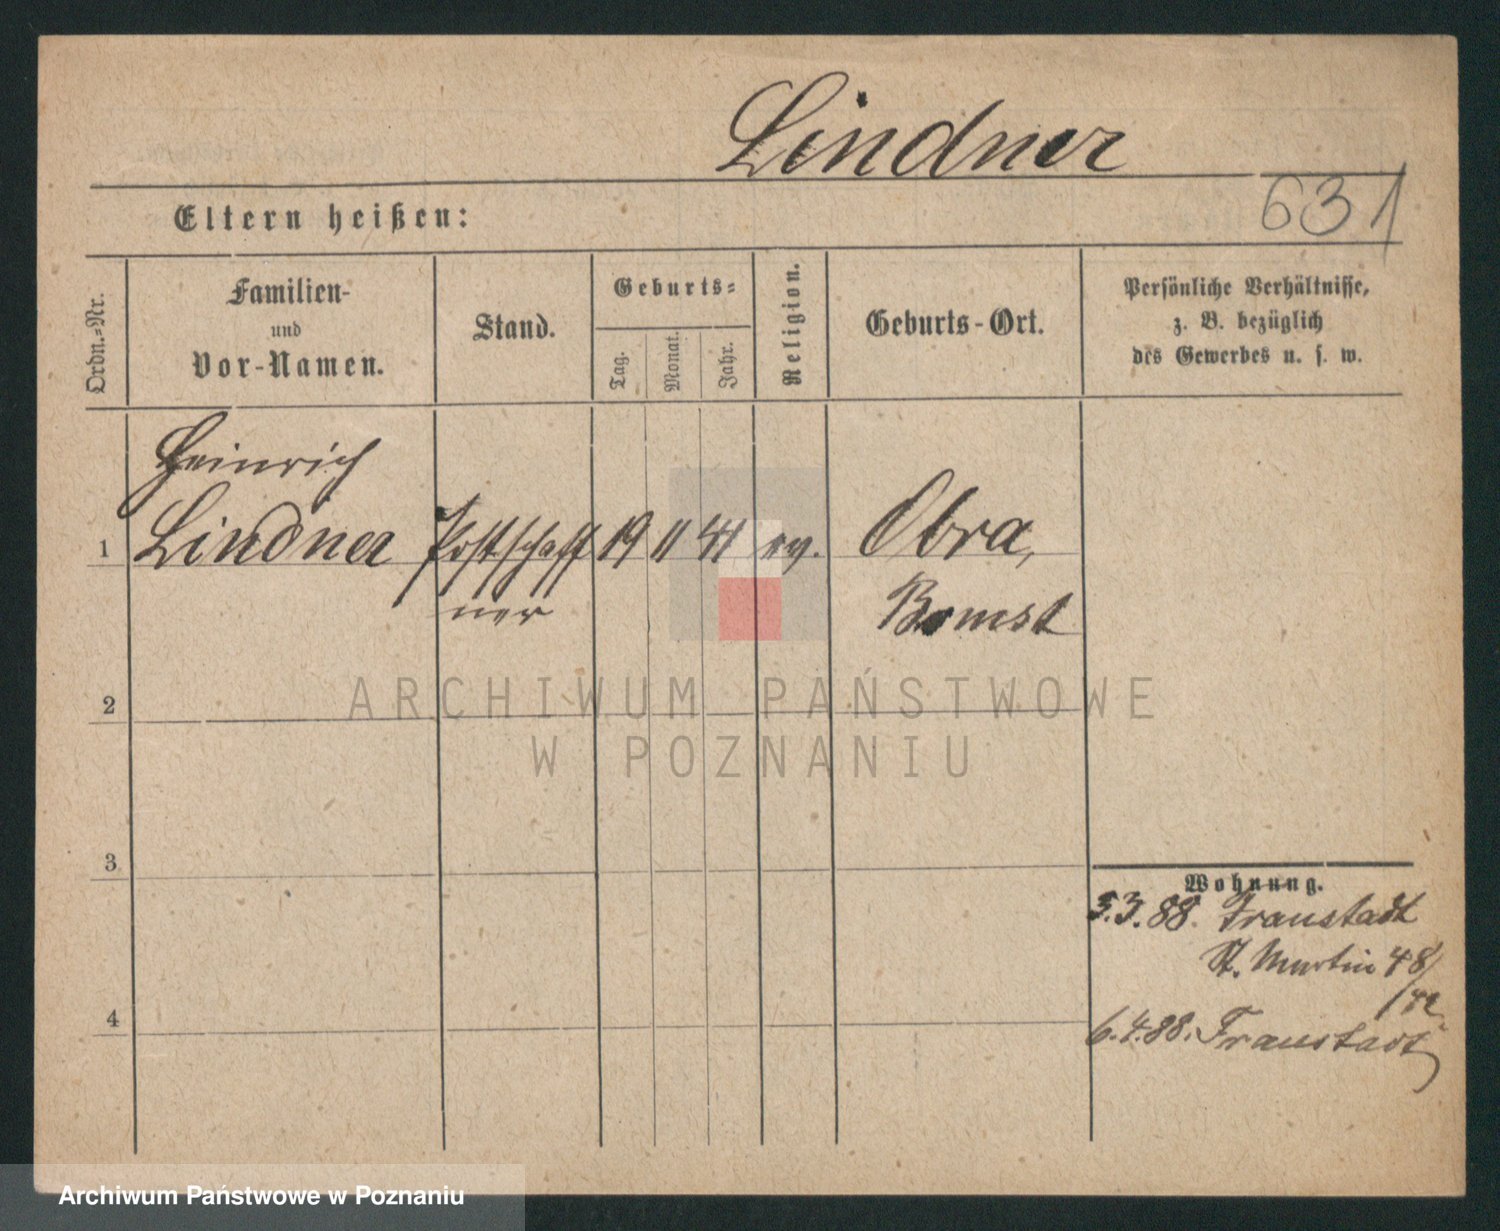 Lindner
631
Eltern heißen:
Ordn.-Nr.
Familien-
und
Vor-Namen.
Stand.
Geburts-
Tag.
Monat.
Jahr.
Religion.
Geburts-Ort.
Persönliche Verhältnisse,
z. B. bezüglich
des Gewerbes u. s. w.
Heinrich
1 Lindner Postschaff 19 11 41 ev. Obra,
ner Bomst
ARCHIWUM PAŃSTWOWE
W POZNANIU
2
3
Wohnung.
3.3.88. Fraustadt
St. Martin 48/
4
6.4.88. Fraustadt
Archiwum Państwowe w Poznaniu